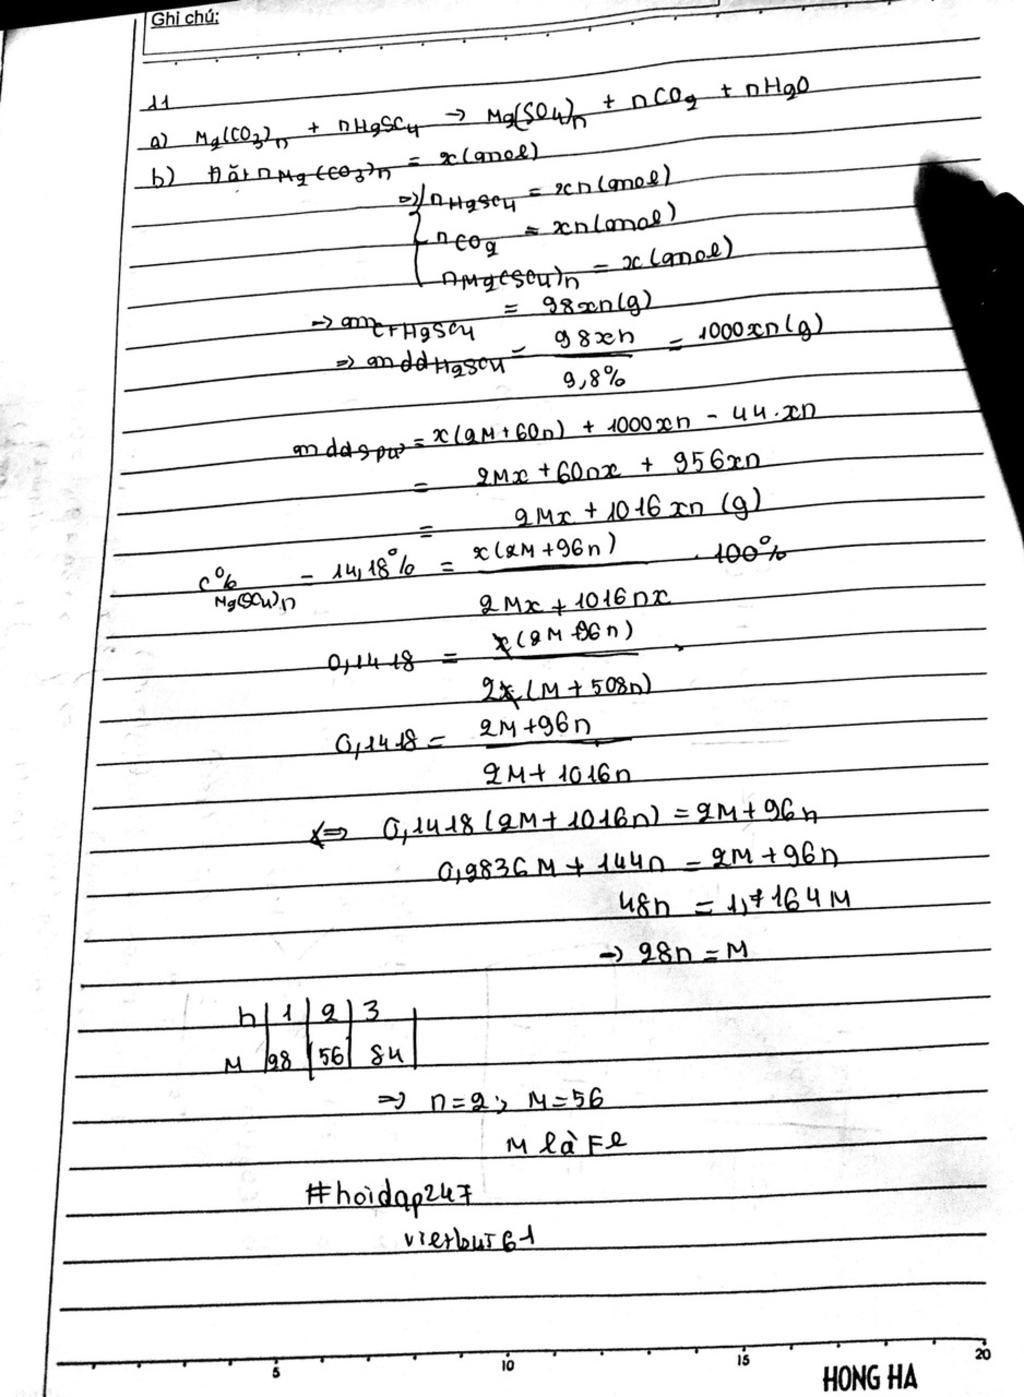 Ghi chú:
11
a) M₂(CO₃)n + nH₂SO₄ → M₂(SO₄)n + nCO₂ + nH₂O
b) Đặt nM₂(CO₃)n = x(mol)
=> nH₂SO₄ = xn(mol)
nCO₂ = xn(mol)
nM₂(SO₄)n = x(mol)
→ mctH₂SO₄ = 98xn(g)
=> mddH₂SO₄ = 98xn / 9,8% = 1000xn(g)
mddspư = x(2M+60n) + 1000xn - 44.xn
= 2Mx + 60nx + 956xn
= 2Mx + 1016xn (g)
C%M₂(SO₄)n = 14,18% = x(2M+96n) / 2Mx + 1016nx . 100%
0,1418 = x(2M+96n) / 2x(M+508n)
0,1418 = 2M+96n / 2M+1016n
<=> 0,1418(2M+1016n) = 2M+96n
0,2836M + 144n = 2M+96n
48n = 1,7164M
→ 28n = M
n | 1 | 2 | 3
M | 28 | 56 | 84
=> n=2; M=56
M là Fe
#hoidap247
vietbui61
5 10 15 20
HONG HA